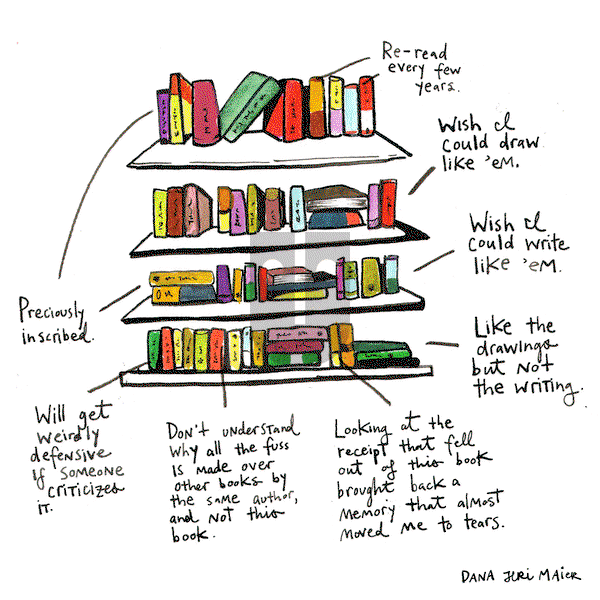 Re-read
every few
years.
Wish I
could draw
like 'em.
Wish I
could write
like 'em.
Preciously
inscribed.
Like the
drawings
but not
the writing.
Will get
weirdly
defensive
if someone
criticizes
it.
Don't understand
why all the fuss
is made over
other books by
the same author,
and not this
book.
Looking at the
receipt that fell
out of this book
brought back a
memory that almost
moved me to tears.
DANA JERI MAIER